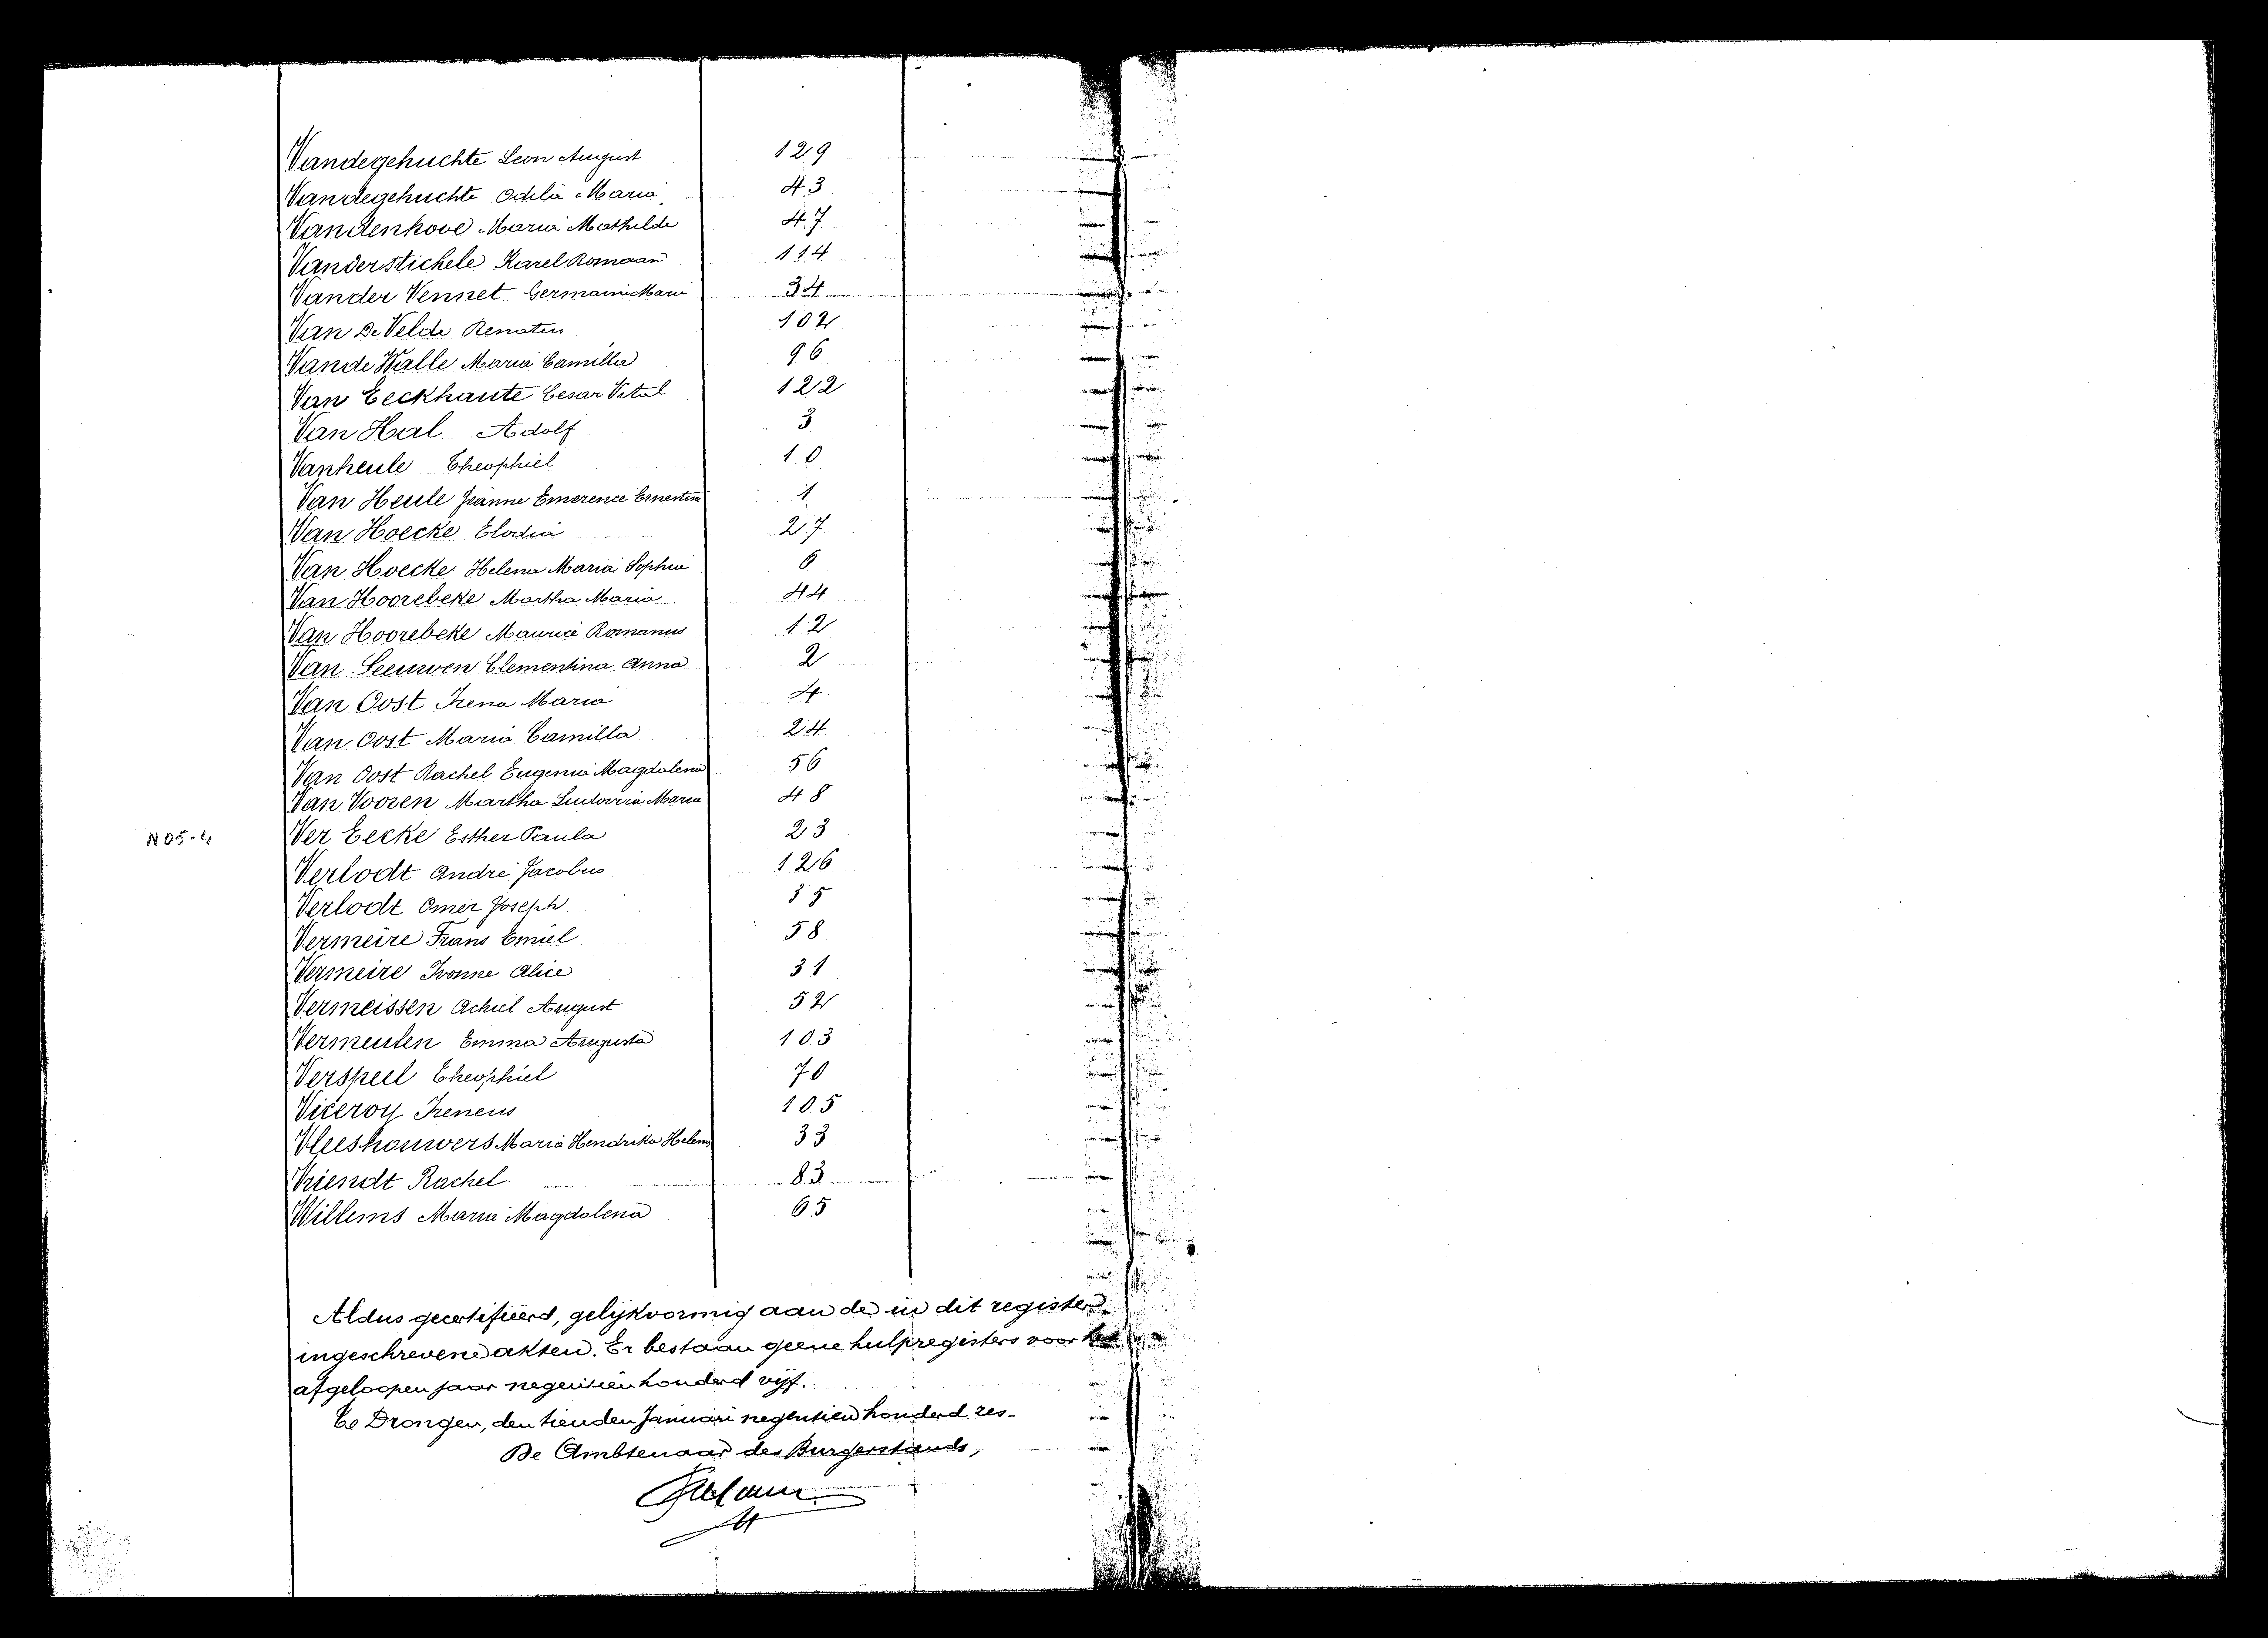 Vandegehuchte Leon August 129
Vandegehuchte Odila Maria 43
Vandenhove Maria Mathilde 47
Vanderstichele Karel Romaan 114
Vander Vennet Germaine Marie 34
Van De Velde Renatus 102
Van de Walle Maria Camilla 96
Van Eeckhaute Cesar Vital 122
Van Hal Adolf 3
Vanheule Theophiel 10
Van Heule Jeanne Emerence Ernestine 1
Van Hoecke Elodia 27
Van Hoecke Helena Maria Sophia 6
Van Hoorebeke Martha Maria 44
Van Hoorebeke Maurice Romanus 12
Van Leeuwen Clementina Anna 2
Van Oost Irena Maria 4
Van Oost Maria Camilla 24
Van Oost Rachel Eugenia Magdalena 56
Van Vooren Martha Ludovica Maria 48
Ver Eecke Esther Paula 23
Verlodt André Jacobus 126
Verlodt Omer Joseph 35
Vermeire Frans Emiel 58
Vermeire Ivonne Alice 31
Vermeissen Achiel August 52
Vermeulen Emma Augusta 103
Verspeel Theophiel 70
Viceroy Ireneus 105
Vleeshouwers Maria Hendrika Helena 33
Vriendt Rachel 83
Willems Maria Magdalena 65
Aldus gecertifiëerd, gelijkvormig aan de in dit register
ingeschrevene akten. Er bestaan geene hulpregisters voor het
afgeloopen jaar negentien honderd vijf.
Te Drongen, den tienden Januari negentien honderd zes.
De Ambtenaar des Burgerstands,